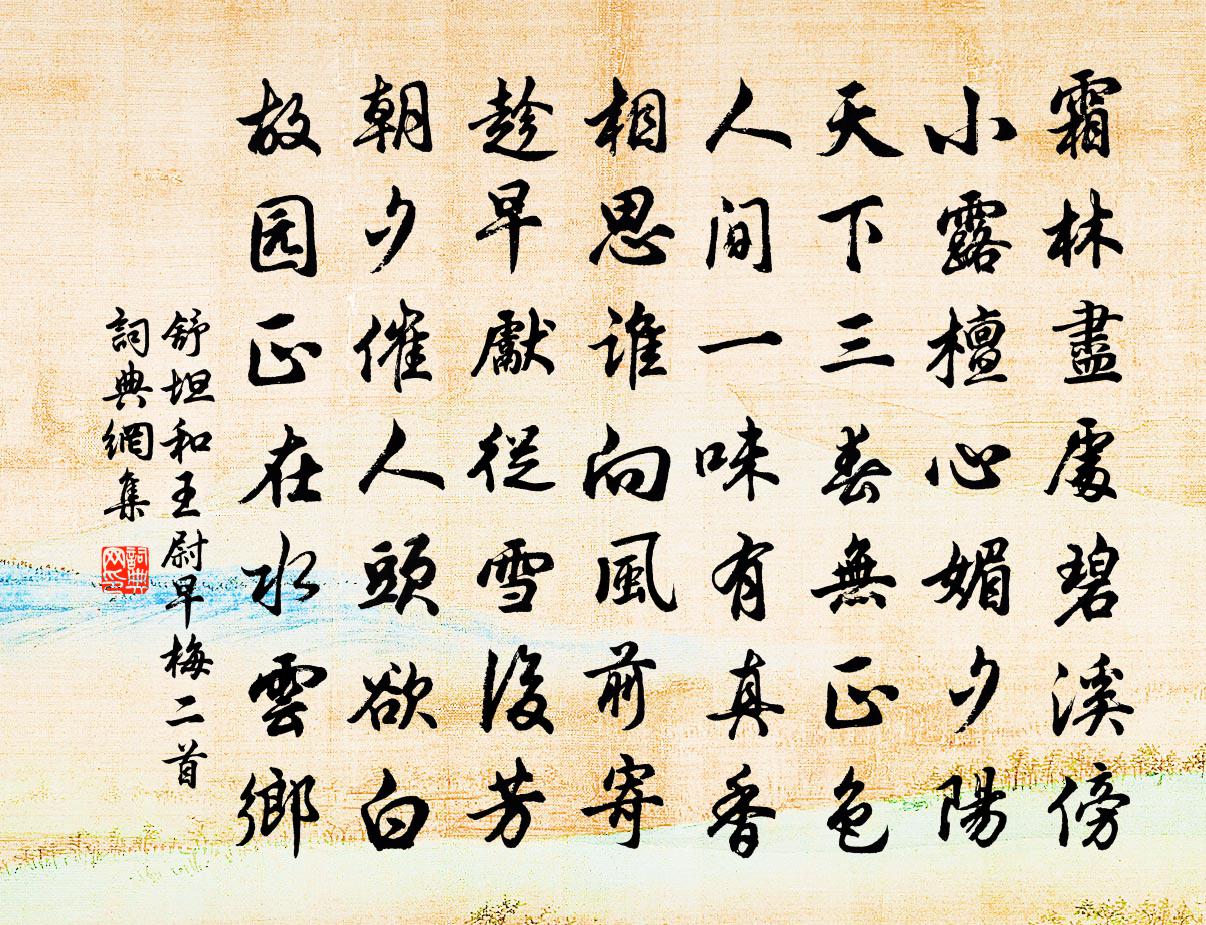 霜林盡處碧溪傍
小露檀心媚夕陽
天下三春無正色
人間一味有真香
相思谁向風前寄
趁早獻從雪後芳
朝夕催人頭欲白
故园正在水雲鄉
舒坦和王尉早梅二首
詞典網集